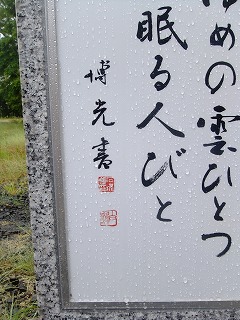 ゆめの雲ひとつ
眠る人びと
博光書